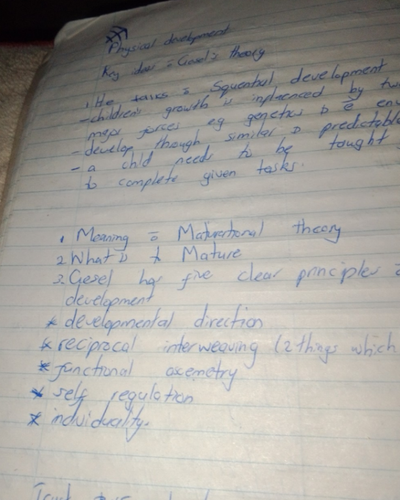 Physical development
Key idea = Gesel's theory
. He tasks Squential development
- children's growth is influenced by two
major forces eg genetics & env
- develop though similar & predictable
- a child needs to be taught
to complete given tasks.
1. Meaning o Maturational theory
2. What is to Mature
3. Gesel has five clear principles
development
* developmental direction
* reciprocal interweaving (2 things which
* functional axemetry
* self regulation
* individuality.